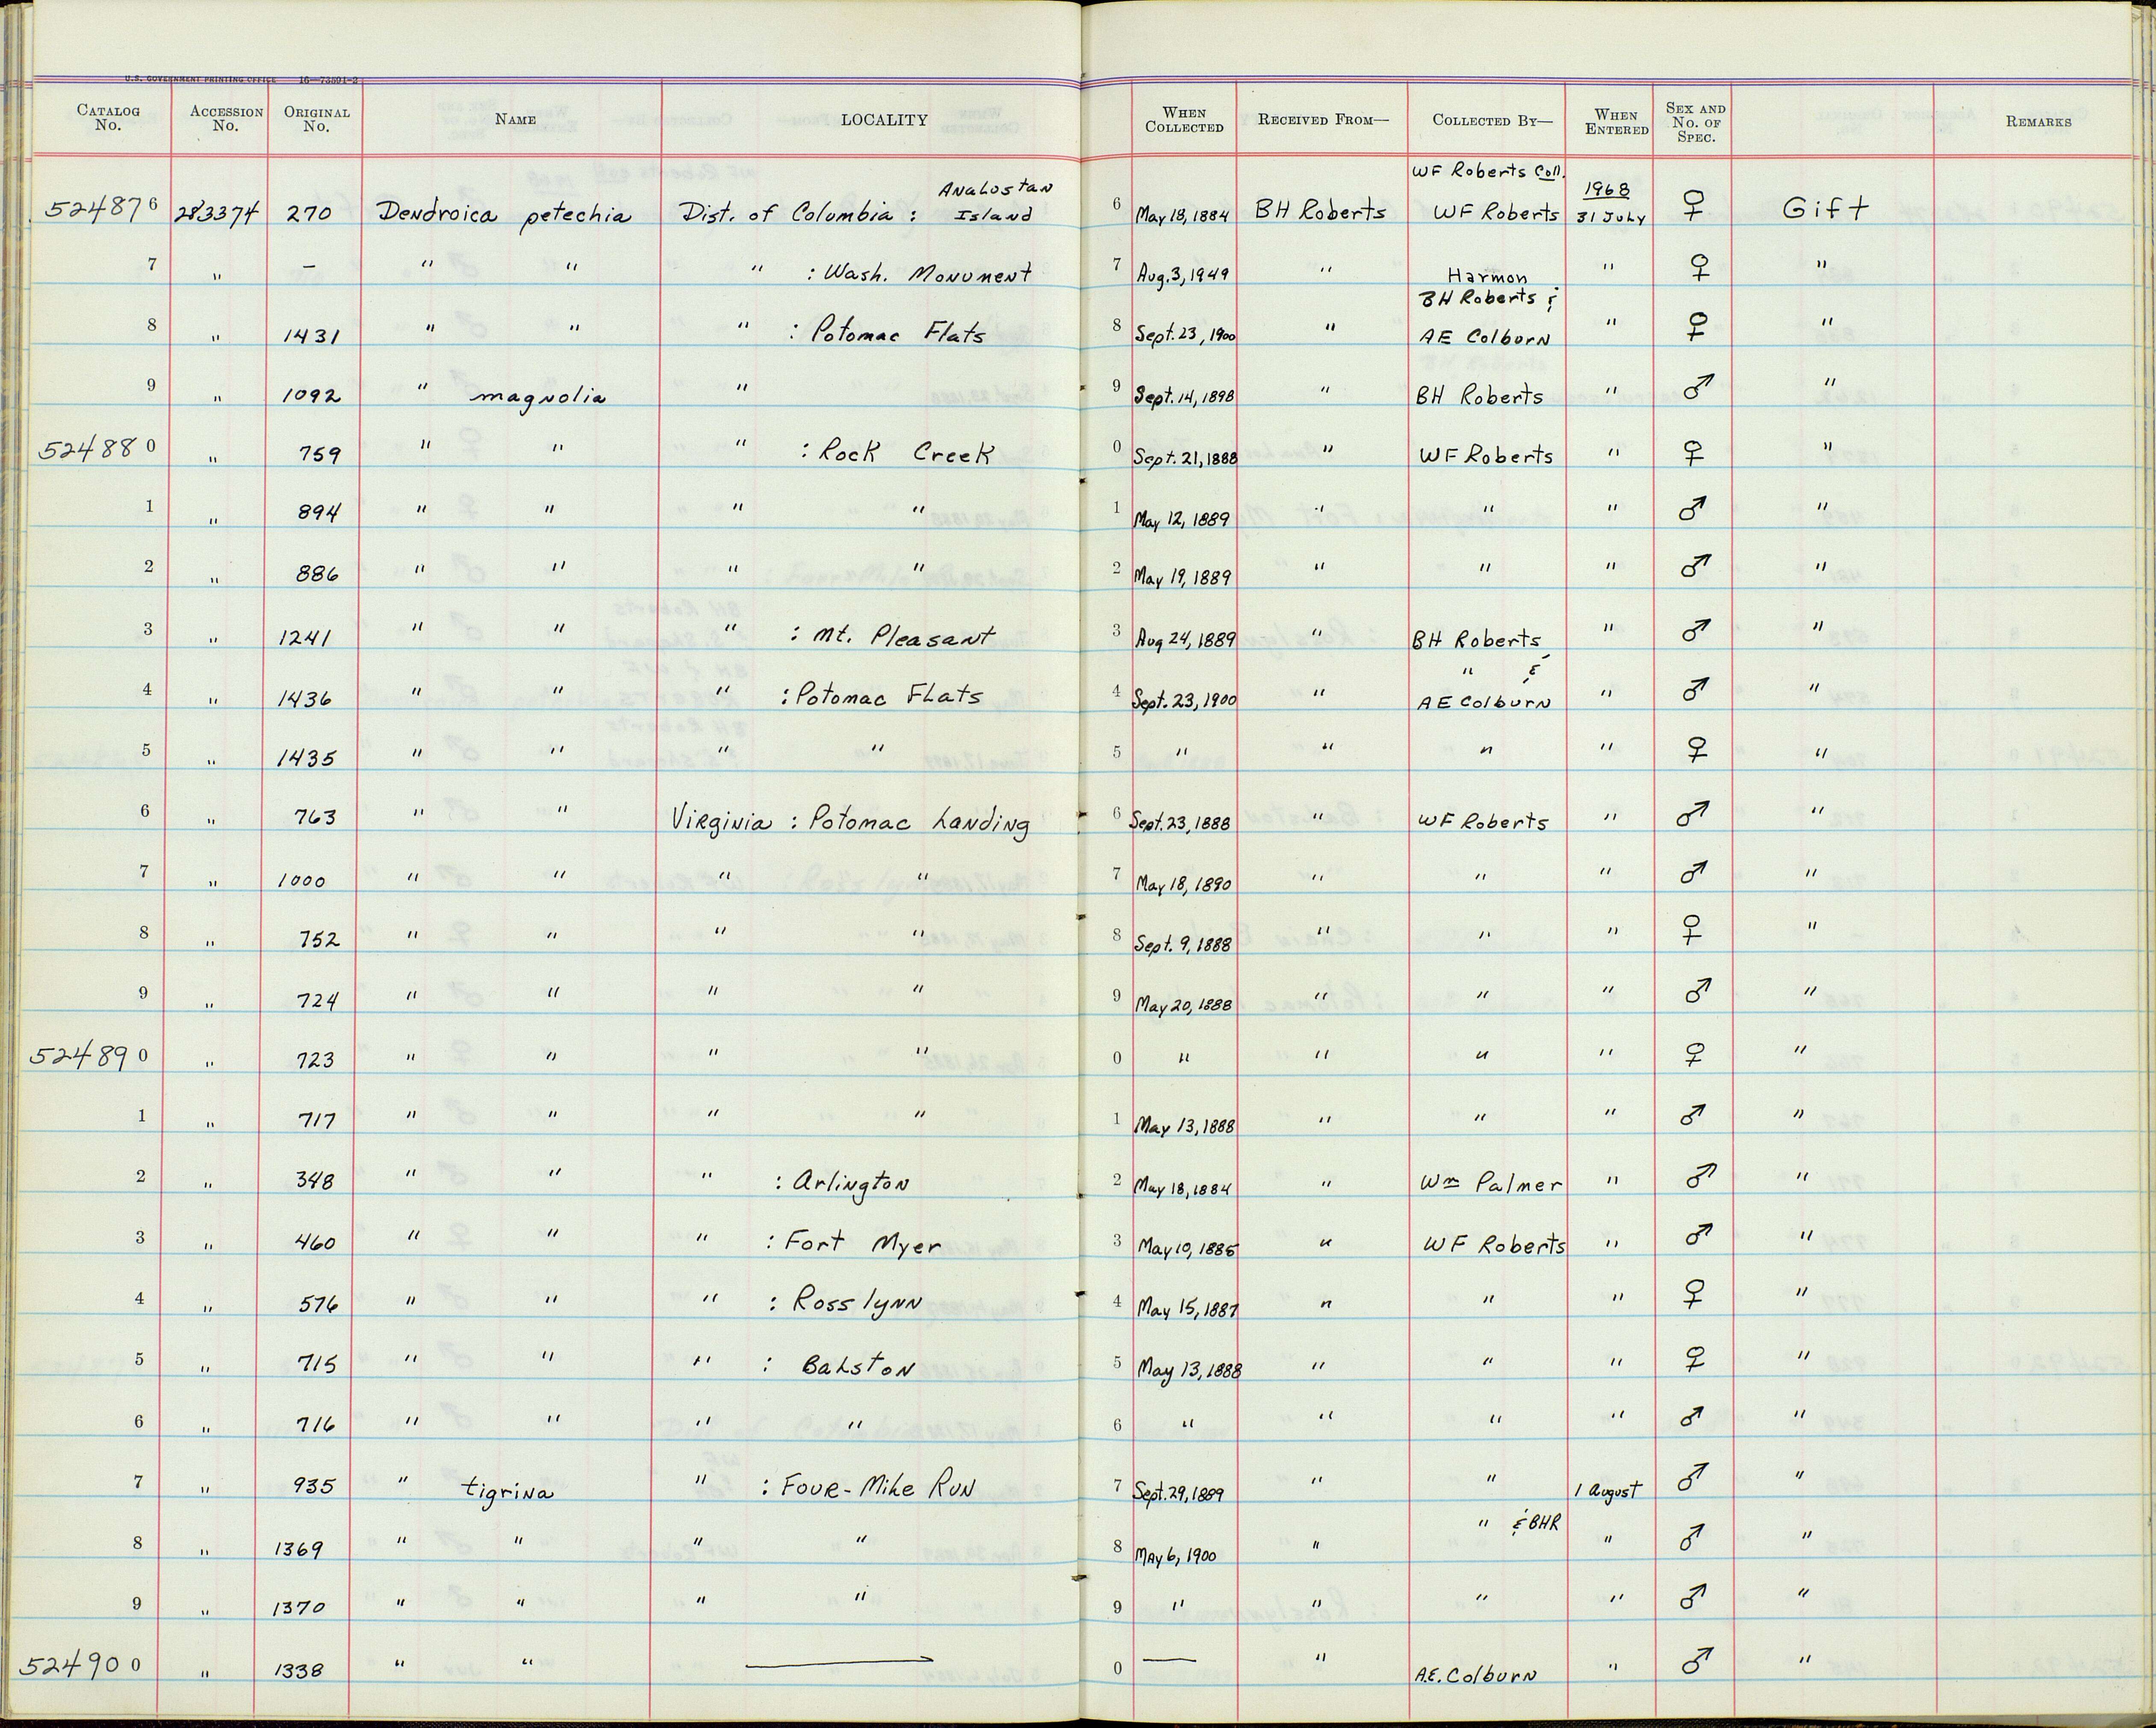 U.S. GOVERNMENT PRINTING OFFICE 16—73591-2
CATALOG No. ACCESSION No. ORIGINAL No. NAME LOCALITY WHEN COLLECTED RECEIVED FROM— COLLECTED BY— WHEN ENTERED SEX AND No. OF SPEC. REMARKS
WF Roberts Coll.
524876 283374 270 Dendroica petechia Dist. of Columbia : Analostan Island 6 May 18, 1884 BH Roberts WF Roberts 1968 31 July ♀ Gift
7 " – " " " : Wash. Monument 7 Aug. 3, 1949 " Harmon " ♀ "
8 " 1431 " " " : Potomac Flats 8 Sept. 23, 1900 " BH Roberts & AE Colburn " ♀ "
9 " 1092 " magnolia " 9 Sept. 14, 1898 " BH Roberts " ♂ "
524880 " 759 " " " : Rock Creek 0 Sept. 21, 1888 " WF Roberts " ♀ "
1 " 894 " " " " 1 May 12, 1889 " " " ♂ "
2 " 886 " " " " 2 May 19, 1889 " " " ♂ "
3 " 1241 " " " : Mt. Pleasant 3 Aug 24, 1889 " BH Roberts " ♂ "
4 " 1436 " " " : Potomac Flats 4 Sept. 23, 1900 " " & AE Colburn " ♂ "
5 " 1435 " " " " 5 " " " " ♀ "
6 " 763 " " Virginia : Potomac Landing 6 Sept. 23, 1888 " WF Roberts " ♂ "
7 " 1000 " " " " 7 May 18, 1890 " " " ♂ "
8 " 752 " " " " 8 Sept. 9, 1888 " " " ♀ "
9 " 724 " " " " 9 May 20, 1888 " " " ♂ "
524890 " 723 " " " " 0 " " " " ♀ "
1 " 717 " " " " 1 May 13, 1888 " " " ♂ "
2 " 348 " " " : Arlington 2 May 18, 1884 " Wm Palmer " ♂ "
3 " 460 " " " : Fort Myer 3 May 10, 1885 " WF Roberts " ♂ "
4 " 576 " " " : Rosslynn 4 May 15, 1887 " " " ♀ "
5 " 715 " " " : Balston 5 May 13, 1888 " " " ♀ "
6 " 716 " " " " 6 " " " " ♂ "
7 " 935 " tigrina " : Four-Mile Run 7 Sept. 29, 1889 " " 1 August ♂ "
8 " 1369 " " " " 8 May 6, 1900 " " & BHR " ♂ "
9 " 1370 " " " " 9 " " " " ♂ "
524900 " 1338 " " — 0 — " A.E. Colburn " ♂ "